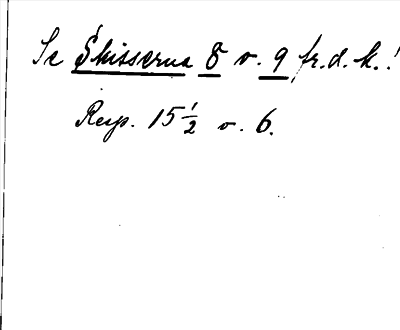 Se Skisserna 8 o. 9 fr. d. k.!
Resp. 15 1/2 o. 6.